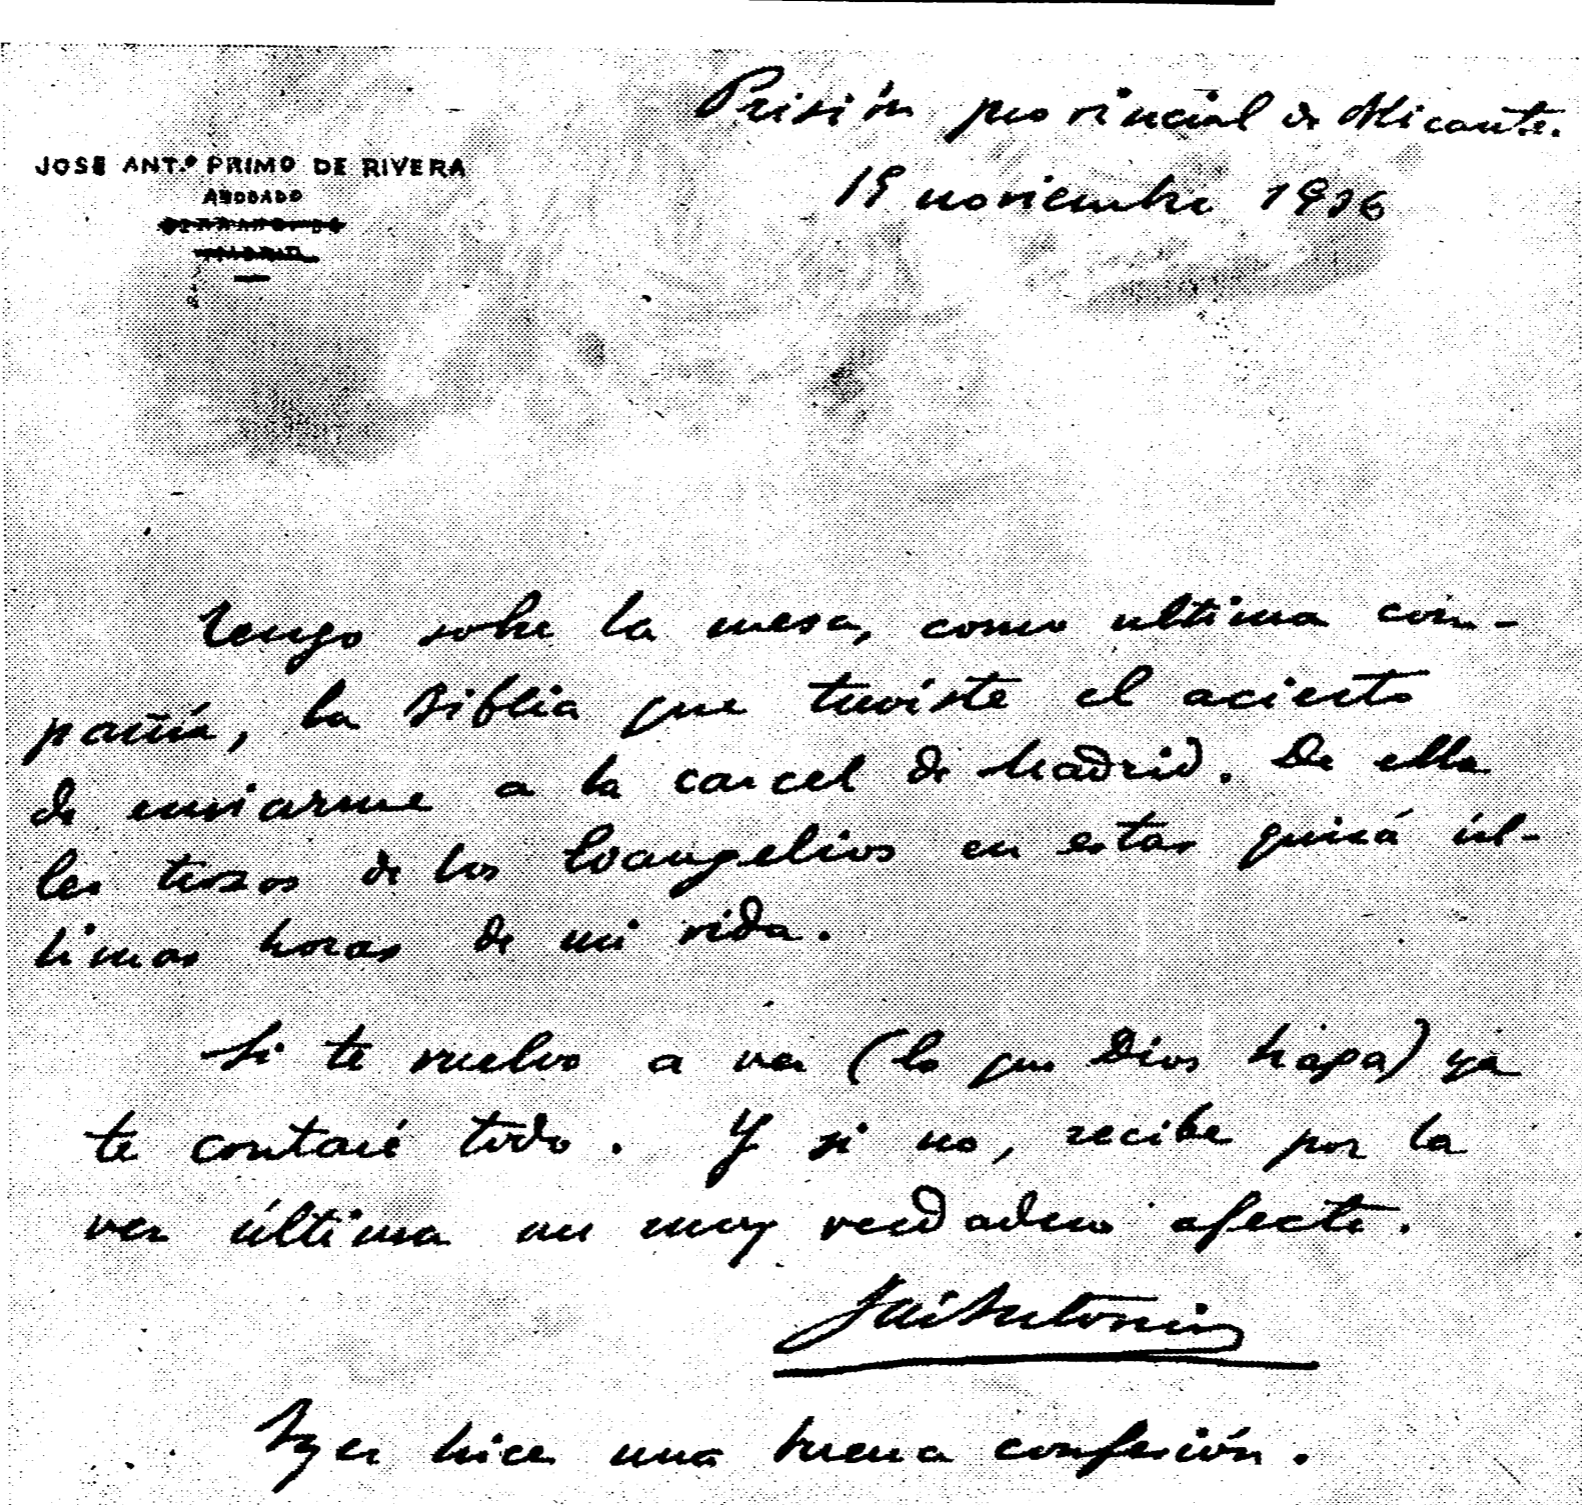 JOSE ANT.º PRIMO DE RIVERA
ABOGADO
MADRID
Prisión provincial de Alicante.
19 noviembre 1936
Tengo sobre la mesa, como ultima com-
pañía, la Biblia que tuviste el acierto
de enviarme a la carcel de Madrid. De ella
leo trozos de los Evangelios en estas quizá úl-
timas horas de mi vida.
Si te vuelvo a ver (lo que Dios haga) ya
te contaré todo. Y si no, recibe por la
vez última un muy verdadero afecto.
José Antonio
Ayer hice una buena confesión.